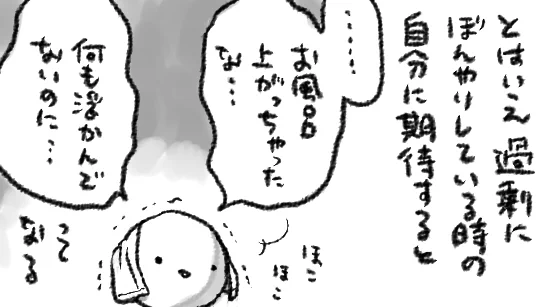 とはいえ過剰に
ぼんやりしている時の
自分に期待すると
……
お風呂
上がっちゃった
な…
何も浮かんで
ないのに…
ほこ
ほこ
って
なる